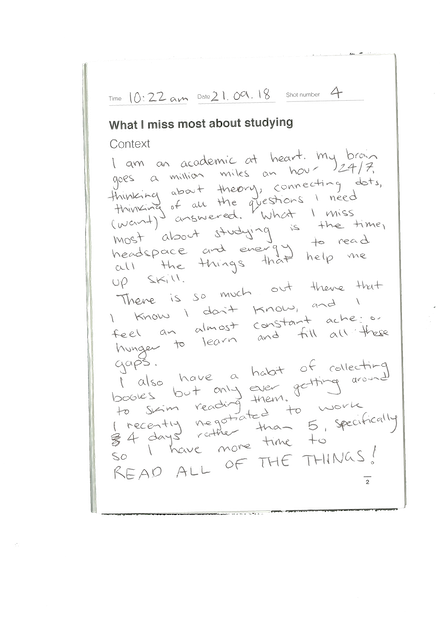 Time 10:22 am Date 21.09.18 Shot number 4
What I miss most about studying
Context
I am an academic at heart. My brain
goes a million miles an hour 24/7,
thinking about theory, connecting dots,
thinking of all the questions I need
(want) answered. What I miss
most about studying is the time,
headspace and energy to read
all the things that help me
up skill.
There is so much out there that
I know I don't know, and I
feel an almost constant ache or
hunger to learn and fill all these
gaps.
I also have a habit of collecting
books but only ever getting around
to skim reading them.
I recently negotiated to work
4 days rather than 5, specifically
so I have more time to
READ ALL OF THE THINGS!
2